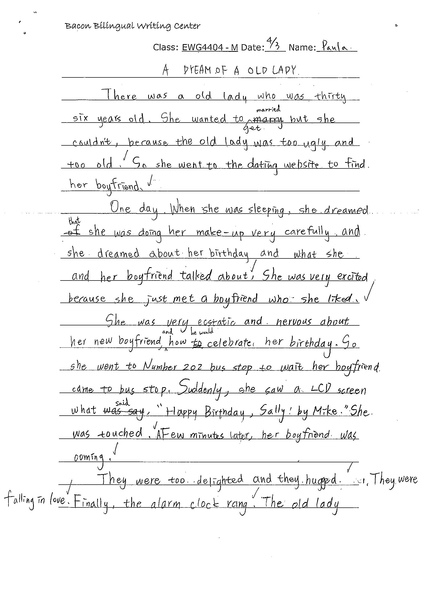 Bacon Bilingual Writing Center
Class: EWG4404 - M Date: 4/3 Name: Paula
A DREAM OF A OLD LADY
There was a old lady who was thirty
married
six years old. She wanted to marry but she
get
couldn't, because the old lady was too ugly and
too old. So she went to the dating website to find
her boyfriend.
One day, When she was sleeping, she dreamed
that
of she was doing her make-up very carefully, and
she dreamed about her birthday and what she
and her boyfriend talked about. She was very excited
because she just met a boyfriend who she liked.
She was very ecstatic and nervous about
and he would
her new boyfriend how to celebrate her birthday. So
she went to Number 202 bus stop to wait her boyfriend
came to bus stop. Suddenly, she saw a LCD screen
said
what was say, "Happy Birthday, Sally! by Mike." She
was touched. A Few minutes later, her boyfriend was
coming.
They were too delighted and they hugged. They were
falling in love. Finally, the alarm clock rang. The old lady